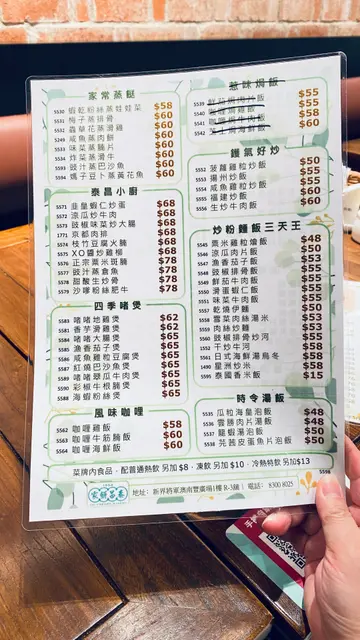 家常蒸餸
5530 蝦乾粉絲蒸娃娃菜 $58
5531 梅子蒸排骨 $60
5532 蟲草花蒸滑雞 $60
5549 咸魚蒸肉餅 $60
5533 味菜蒸腩片 $60
5534 炸菜蒸滑牛 $60
5593 豉汁蒸巴沙魚 $60
5594 媽子豆卜蒸黃花魚 $60
泰昌小廚
5571 韭皇蝦仁炒蛋 $68
5572 涼瓜炒牛肉 $68
5573 豉椒味菜炒大腸 $68
1771 京都肉排 $68
5574 枝竹豆腐火腩 $68
5575 XO醬炒雞柳 $68
5576 正宗粟米斑腩 $78
5577 豉汁蒸倉魚 $78
5578 甜酸生炒骨 $78
5579 沙嗲粉絲肥牛 $78
四季啫煲
5583 啫啫地雞煲 $62
5581 香芋滑雞煲 $62
5584 啫啫大腸煲 $65
5585 漁香茄子煲 $65
5586 咸魚雞粒豆腐煲 $65
5587 紅燒巴沙魚煲 $65
5589 啫啫翠瓜牛肉煲 $65
5590 彩椒牛根腩煲 $65
5588 海蝦粉絲煲 $65
風味咖喱
5562 咖喱雞飯 $58
5563 咖喱牛筋腩飯 $60
5564 咖喱海鮮飯 $60
惹味焗飯
5539 $55
5540 $55
5541 $58
5542 $60
鑊氣好炒
5552 菠蘿雞粒炒飯 $50
5553 揚州炒飯 $55
5554 咸魚雞粒炒飯 $55
5555 福建炒飯 $60
5556 生炒牛肉飯 $60
炒粉麵飯三天王
5545 粟米雞粒燴飯 $48
5546 涼瓜肉片飯 $50
5547 漁香茄子飯 $53
5548 豉椒排骨飯 $55
5549 鮮茄牛肉飯 $55
5550 滑蛋蝦仁飯 $55
5551 味菜牛肉飯 $55
5557 乾燒伊麵 $50
5558 雪菜肉絲湯米 $53
5559 肉絲炒麵 $53
5560 豉椒排骨炒河 $55
1552 干炒牛河 $58
5561 日式海鮮湯烏冬 $58
1490 星洲炒米 $58
5595 泰國香米飯 $15
時令湯飯
5535 瓜粒海皇泡飯 $48
5536 雲勝肉片湯飯 $48
5537 龍蝦湯泡飯 $50
5538 芫茜皮蛋魚片泡飯 $50
菜牌內食品﹐配普通熱飲 另加 $8﹐凍飲 另加 $10﹐冷熱特飲 另加$13
5598
泰昌餅家
地址：新界將軍澳南豐廣場1樓 R-3舖 | 電話：8300 8025